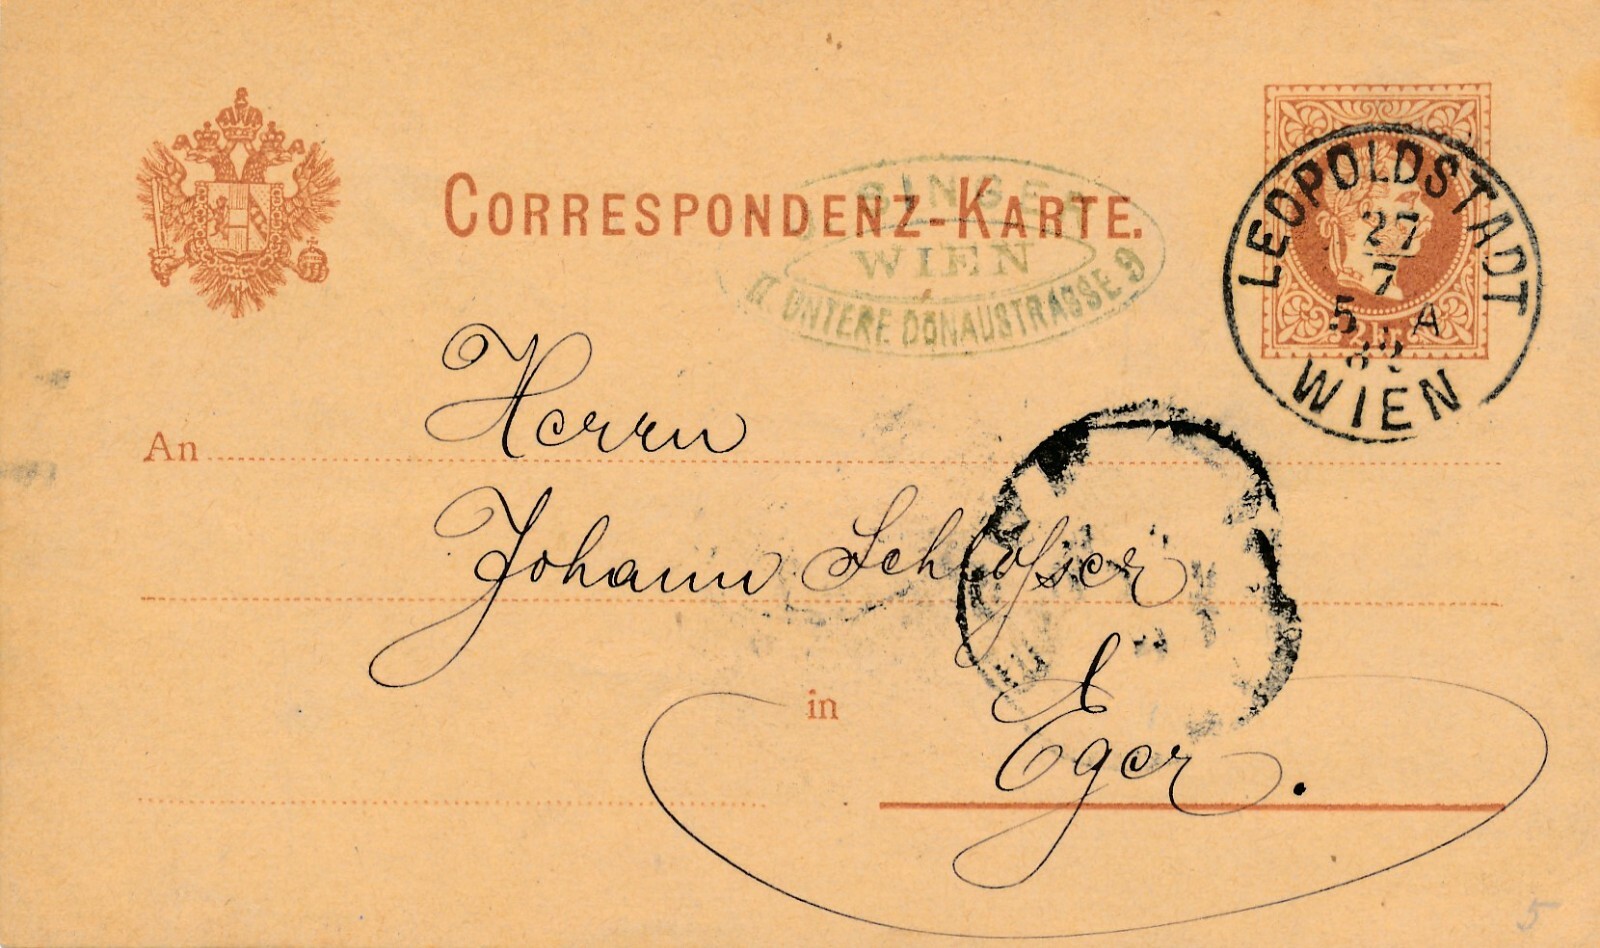 CORRESPONDENZ-KARTE.
SINGER
WIEN
II. UNTERE DONAUSTRASSE 9
LEOPOLDSTADT
27
7
5 A
82
WIEN
2 kr.
An Herrn
Johann Schlosser
in Eger.
5